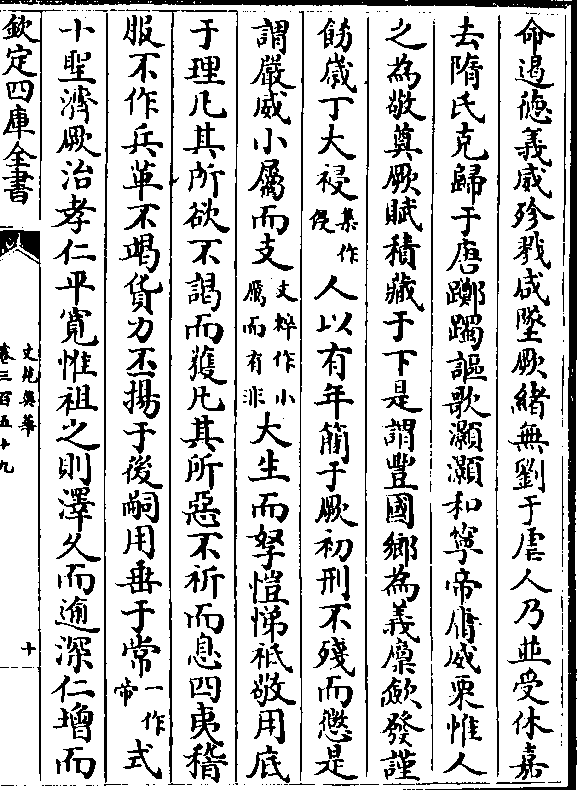 命遏徳義威殄戮咸墜厥緒無劉于虐人乃並受休嘉
去隋氏克歸于唐躑躅謳歌灝灝和寧帝庸威栗惟人
之為敬奠厥賦積藏于下是謂豐國鄉為義廩歛發謹
飭嵗丁大祲集作侵人以有年簡于厥初刑不殘而懲是
謂嚴威小屬而支文粹作小屬而有非大生而孥愷悌祗敬用底
于理凡其所欲不謁而獲凡其所惡不祈而息四夷稽
服不作兵革不竭貨力丕揚于後嗣用垂于常一作帝式
十聖濟厥治孝仁平寛惟祖之則澤久而逾深仁增而
欽定四庫全書
文苑英華
卷三百五十九
十